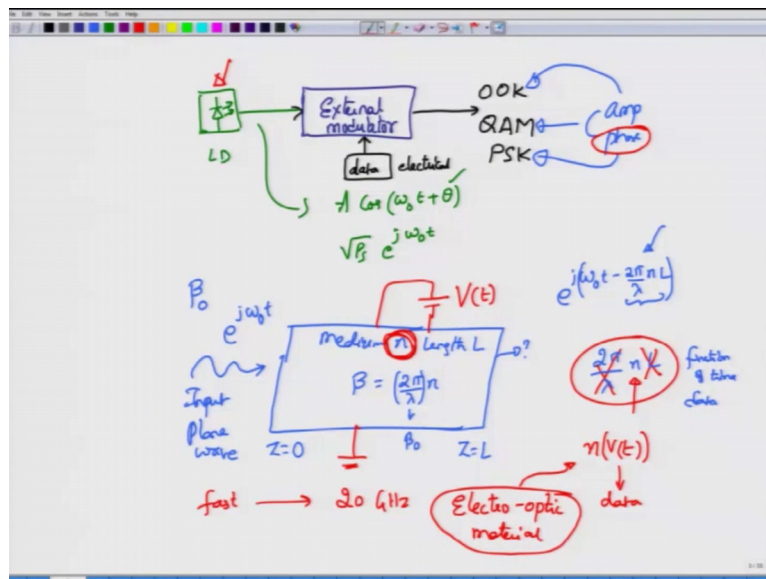 File Edit View Insert Actions Tools Help
OOK
QAM
PSK
amp
phase
External modulator
LD
data electrical
A Cos(ω₀t + θ)
√Ps e^{jω₀t}
β₀
e^{jω₀t}
V(t)
e^{j(ω₀t - 2π/λ nL)}
medium n Length L
0?
β = (2π/λ)n
β₀
Input
Plane
wave
Z=0
Z=L
2π/λ n L
function
of time
data
n(V(t))
data
fast → 20 GHz
Electro-optic
material